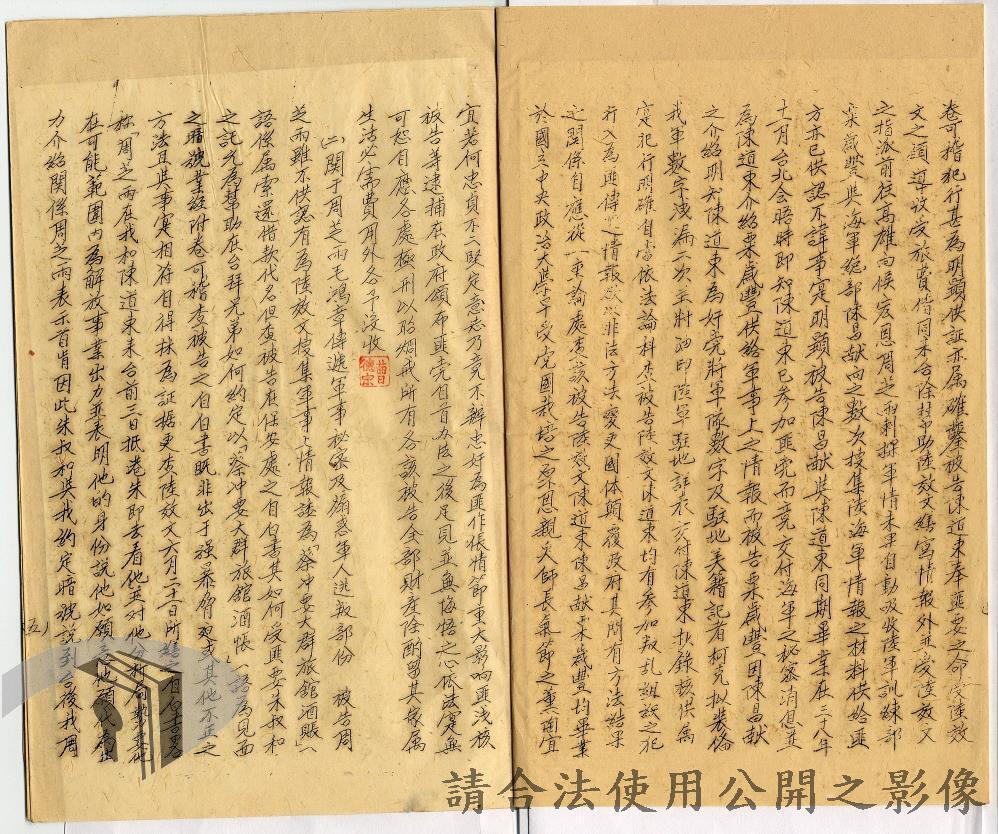 卷可稽犯行甚為明顯供証亦属確鑿被告陳道東奉匪要之命受陸效
文之領導收受旅費偕同來台除幫助陸效文繕寫情報外並受陸效文
之指派前往高雄向候宏恩周芝雨刺探軍情未果自動吸收陸軍訓練部
栗歲豐與海軍總部陳昌献向之数次搜集陸海軍情報之材料供給匪
方亦已供認不諱事实明顯被告陳昌献與陳道東同期畢業在三十八年
十月台北会晤時即知陳道東已參加匪党而竟交付海軍之秘密消息並
為陳道東介紹栗歲豐供給軍事上之情報而被告栗歲豐因陳昌献
之介紹明知陳道東為奸党將軍隊数字及駐地美籍記者柯克拟裝俻
我軍数字洩漏二次並將油印陸軍駐地註表交付陳道東扒錄核供属
实犯行明確自当依法論科共被告陸效文陳道東均有參加叛乱組織之犯
行入為匪傳遞情報欲以非法方法变更國体顛覆政府其間有方法結果
之関係自應從一重論處查該被告陸效文陳道東陳昌献栗歲豐均畢業
於國立中央政治大學早受党國栽培之厚恩親炙師長氣節之薰陶宜
宜若何忠貞不二堅定意志乃竟不辨忠奸為匪作倀情節重大影响匪浅核
被告等逮捕在政府頒布匪党自首办法之後足見並無悔悟之心依法实無
可恕自應各處極刑以昭烱戒所有各該被告全部財產除酌留其家属
生活必需費用外各予沒收
(二)関于周芝雨毛鴻章傳遞軍事秘密及煽惑軍人逃叛部份 被告周
芝雨雖不供認有為陸效文搜集軍事上情報諉為「蔡冲要大群旅館酒賬」
語係属索還借款代名但查被告在保安處之自白書其如何受匪要朱叔和
之託允為幫助在台拜兄弟如何約定以「蔡冲要大群旅館酒帳」一語為見面
之暗號業經附卷可稽查被告之自白書既非出于强暴脅迫或其他不正之
方法且與事实相符自得採為証据更查陸效文六月二十一日所繕之自白書亦
称「周芝雨在我和陳道東來台前三日抵港朱即去看他並對他分析
在可能範圍內為解放事業出力並表明他的身份說他如願意
力介紹関係周芝雨表示首肯因此朱叔和與我約定暗號說到台後我周
(五)
曾德宗
請合法使用公開之影像